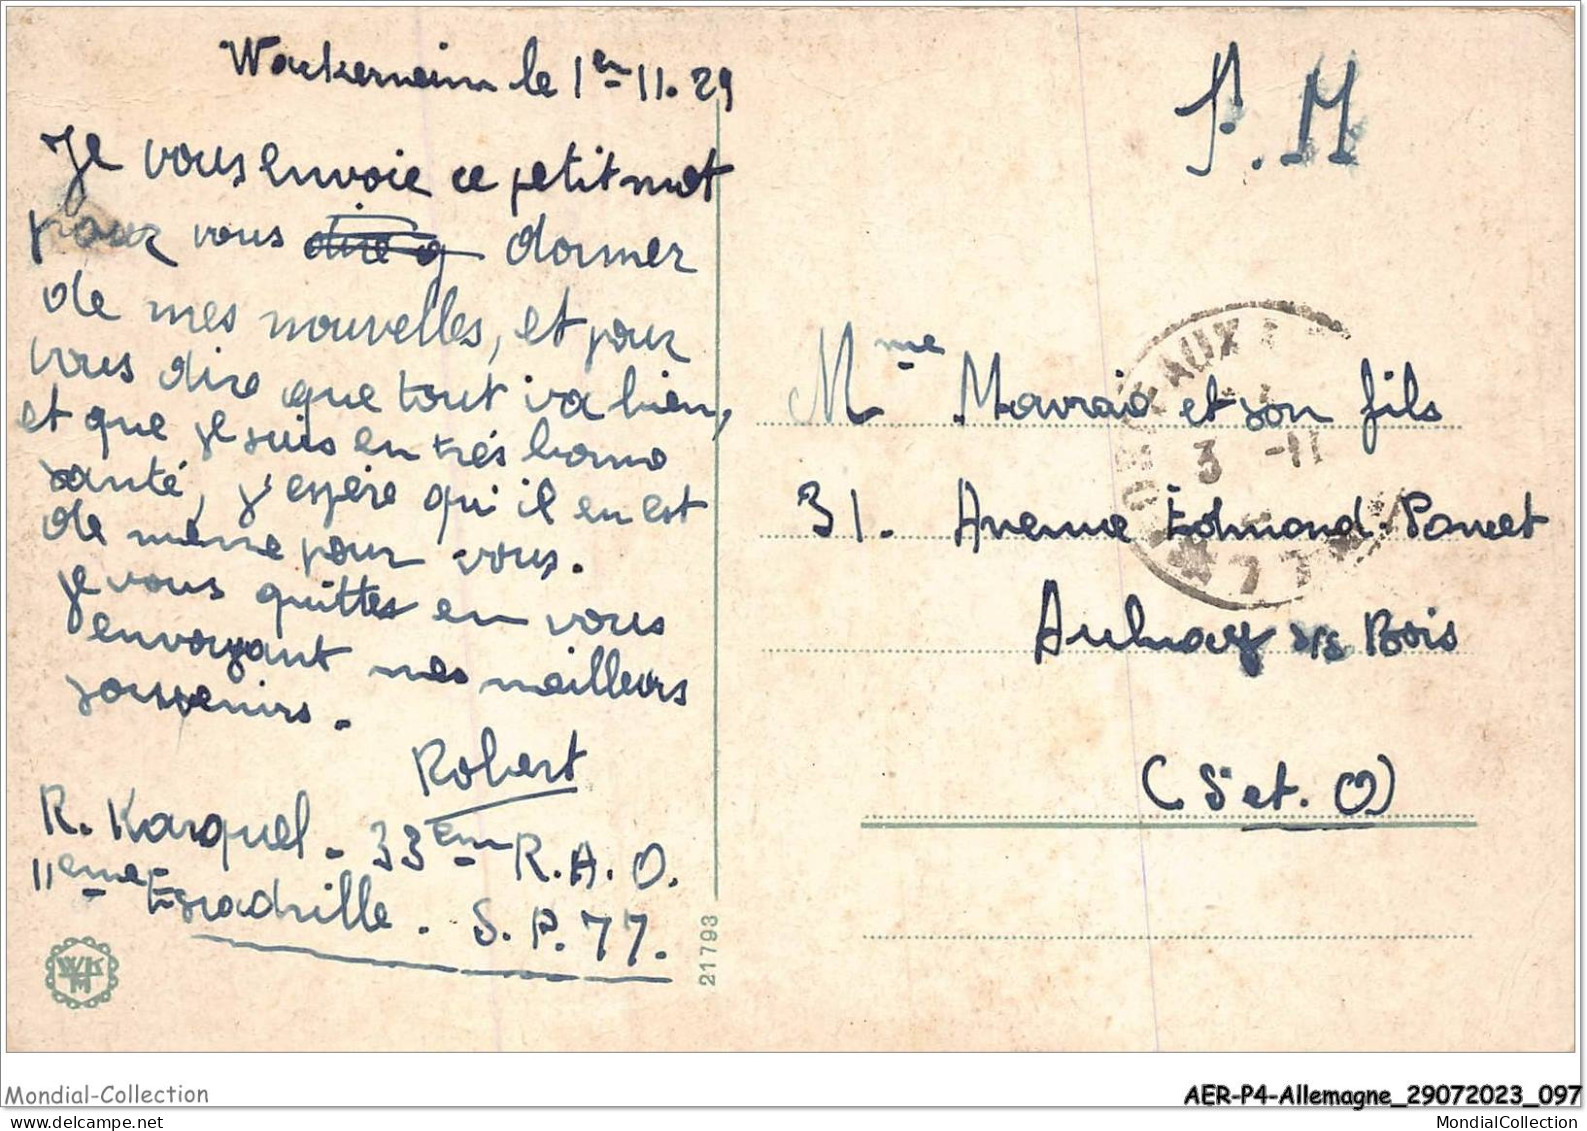 Wackerneim le 1er 11. 29
Je vous envoie ce petit mot
pour vous dire q donner
de mes nouvelles, et pour
vous dire que tout va bien,
et que je suis en très bonne
santé, j'espère qu'il en est
de même pour vous.
je vous quittes en vous
envoyant mes meilleurs
souvenirs.
Robert
R. Karquel - 33ème R.A.O.
11ème Escadrille. S.P. 77.
WKM
21793
F.M
Mme Mavraid et son fils
31. Avenue Edmond-Poncet
Aulnay s/s Bois
(S et. O)
3 -11
77
Mondial-Collection
AER-P4-Allemagne_29072023_097
MondialCollection